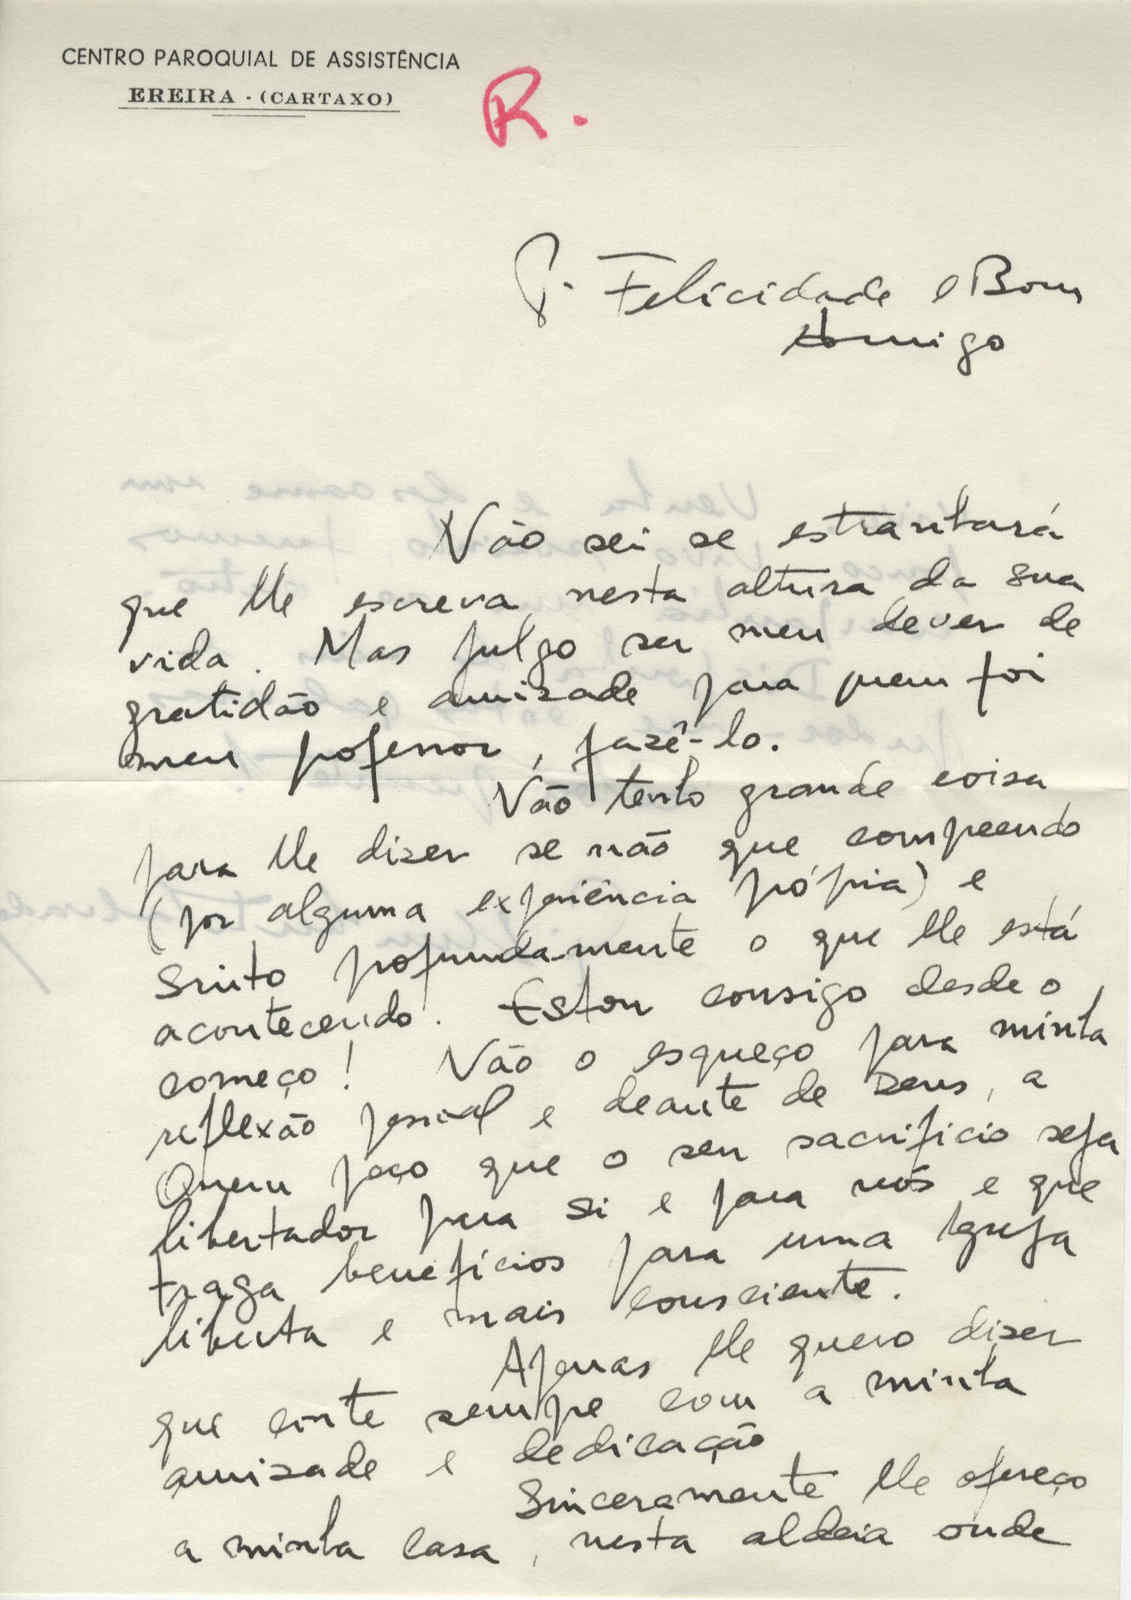 CENTRO PAROQUIAL DE ASSISTÊNCIA
EREIRA - (CARTAXO)
R.
P. Felicidade e Bom
Amigo
Não sei se estranhará
que lhe escreva nesta altura da sua
vida. Mas julgo ser meu dever de
gratidão e amizade para quem foi
meu professor, fazê-lo.
Não tenho grande coisa
para lhe dizer se não que compreendo
(por alguma experiência própria) e
sinto profundamente o que lhe está
acontecendo. Estou consigo desde o
começo! Não o esqueço para minha
reflexão pessoal e deante de Deus, a
Quem peço que o seu sacrifício seja
libertador para si e para nós e que
traga benefícios para uma Igreja
liberta e mais consciente.
Apenas lhe quero dizer
que conte sempre com a minha
amizade e dedicação
Sinceramente lhe ofereço
a minha casa, nesta aldeia onde